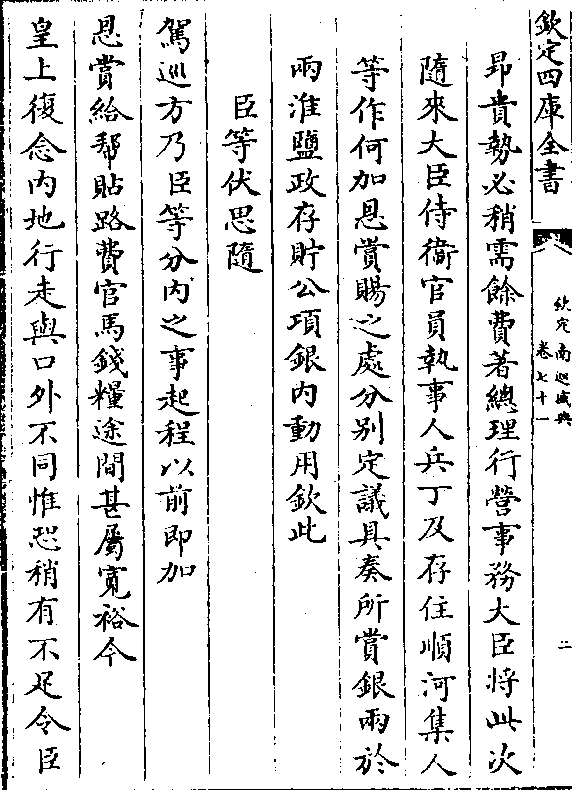 欽定四庫全書
欽定南巡盛典
卷七十一
二
昻貴勢必稍需餘費著總理行營事務大臣將此次
隨來大臣侍衞官員執事人兵丁及存住順河集人
等作何加恩賞賜之處分别定議具奏所賞銀兩於
兩淮鹽政存貯公項銀内動用欽此
臣等伏思隨
駕巡方乃臣等分内之事起程以前即加
恩賞給幇貼路費官馬錢糧途間甚屬寛裕今
皇上復念内地行走與口外不同惟恐稍有不足令臣